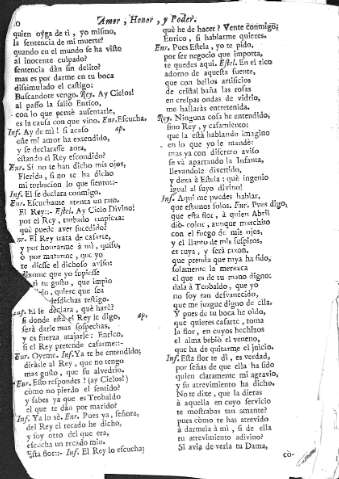 Amor, Honor, y Poder.
quien oyga de ti, yo mismo,
la sentencia de mi muerte?
quando en el mundo se ha visto
al inocente culpado?
sentencia dàn sin delito?
mas es por darme en tu boca
dissimulado el castigo:
Buscandote vengo. Rey. Ay Cielos!
al passo la saliò Enrico,
con lo que pensè ausentarle,
es la causa con que vino. Enr. Escucha.
Inf. Ay de mi! si acaso ap.
este mi amor ha extendido,
y se declarasse antes,
estando el Rey escondido?
Enr. Si no te han dicho mis ojos,
Florida, si no se ha dicho
mi turbacion lo que siento:-
Inf. El se declara conmigo.
Enr. Escuchame
El Rey:- Estel. Ay Cielo Divino!
por el Rey,
què puede aver sucedido?
El Rey trata de casarte,
y por honrarme à mi, quiso,
ò por matarme, que yo
te diesse el dichoso aviso:
que yo supiesse
tu gusto, que impio
quiere que sea
desdichas testigo.
Inf. El se declara, què harè?
si donde està el Rey le digo, ap.
serà darle mas sospechas,
y es fuerza atajarle: Enrico,
si el Rey pretende casarme:-
Enr. Oyeme. Inf. Ya te he entendido;
diràsle al Rey, que no tengo
mas gusto, que su alvedrio.
Enr. Esso respondes? (ay Cielos!)
còmo no pierdo el sentido?
y sabes ya que es Teobaldo
el que te dàn por marido?
Inf. Ya lo sè. Enr. Pues ya, señora,
del Rey el recado he dicho,
y soy otro del que era,
escucha un recado mio.
Esta flor:- Inf. El Rey lo escucha;
què he de hacer? Vente conmigo,
Enrico, si hablarme quieres.
Enr. Pues Estela, yo te pido,
por ser negocio que importa,
te quedes aqui. Estel. En el rico
adorno de aquesta fuente,
que con bellos artificios
de cristal baña las cosas
en crespas ondas de vidrio,
me hallaràs entretenida.
Rey. Ninguna cosa he entendido,
sino Rey, y casamiento:
que la està hablando imagino
en lo que yo le mandè:
mas ya con discreto aviso
se và apartando la Infanta,
llevandole divertido,
y dexa à Estela: què ingenio
igual al suyo divino!
Inf. Aqui me puedes hablar,
que estamos solos. Enr. Pues digo,
que esta flor, à quien Abril
diò color, aunque marchito
con el fuego de mis ojos,
y el llanto de mis suspiros,
es tuya, y serà razon,
que prenda que tuya ha sido,
solamente la merezca
el que es de tu mano digno:
dala à Teobaldo, que yo
no soy tan desvanecido,
que me juzgue digno de ella.
Y pues de tu boca he oìdo,
que quieres casarte, toma
la flor, en cuyos hechizos
el alma bebiò el veneno,
que ha de quitarme el juicio.
Inf. Esta flor te dì, es verdad,
por señas de que ella ha sido
quien claramente mi agravio,
y su atrevimiento ha dicho.
No te dixe, que la dieras
à aquella en cuyo servicio
te mostrabas tan amante?
pues còmo te has atrevido
à darmela à mì, si de ella
tu atrevimiento adivino?
Si avìa de verla tu Dama,
co-